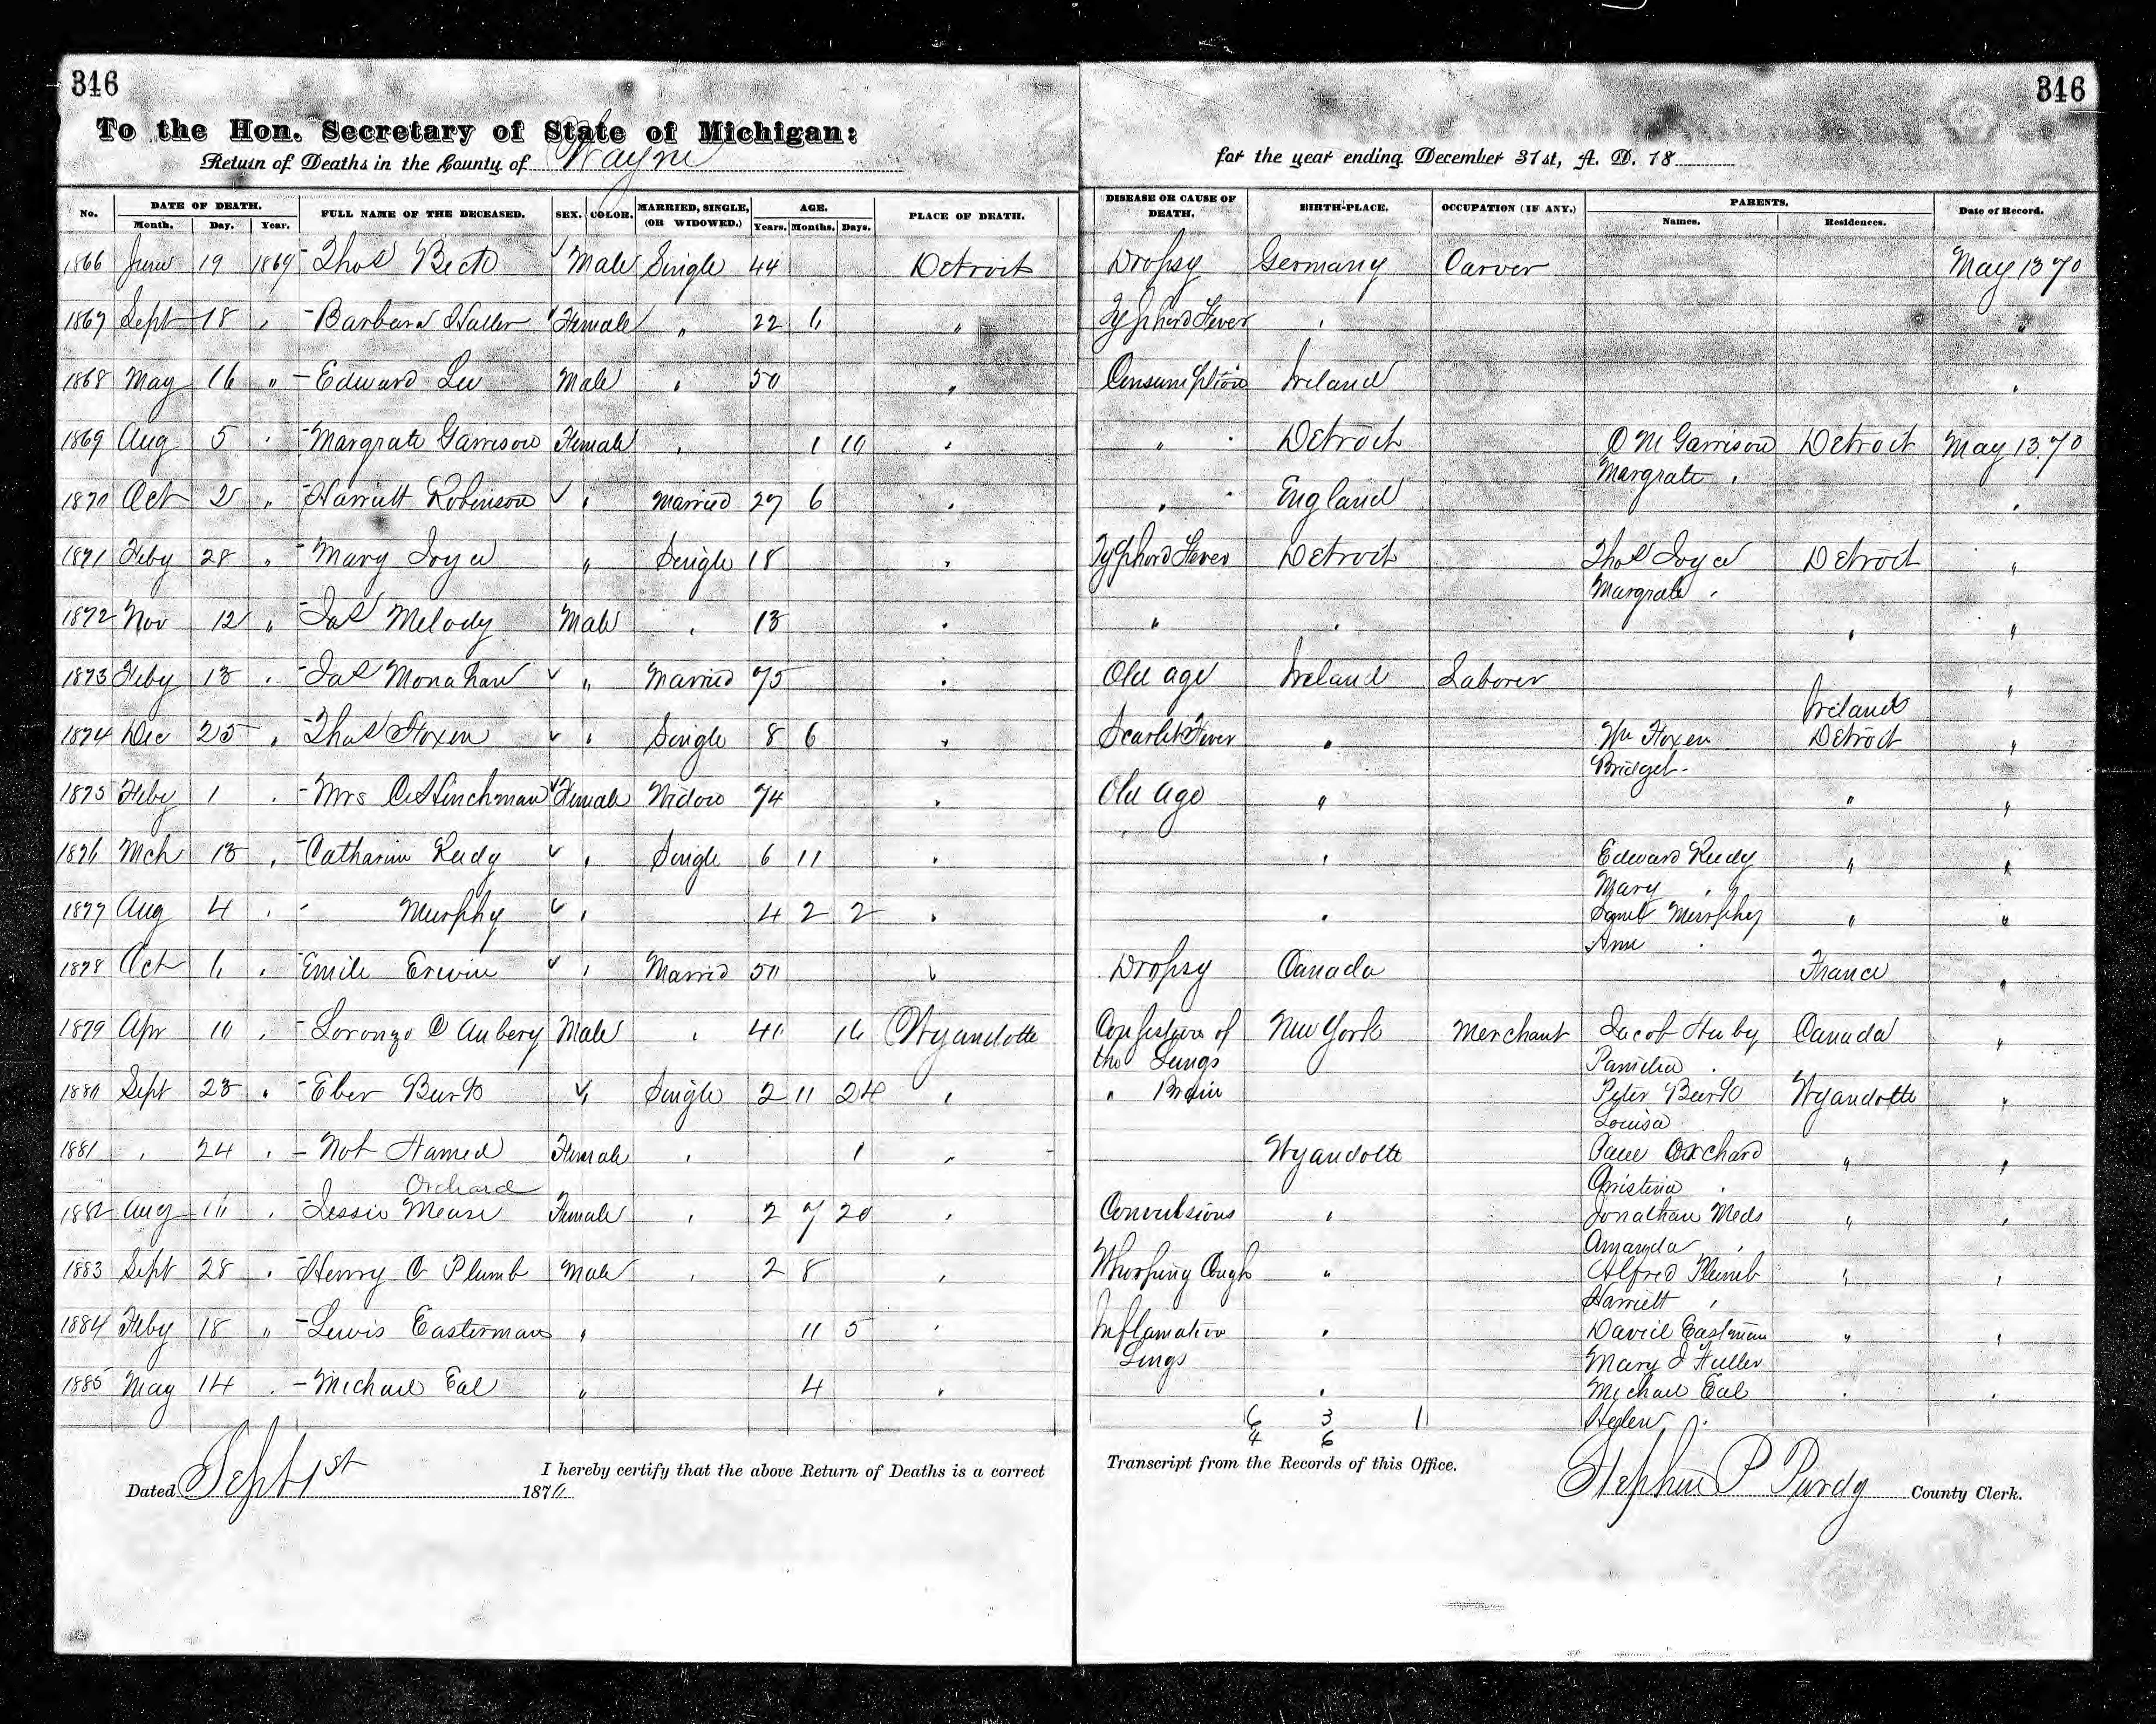 346
346
To the Hon. Secretary of State of Michigan:
Return of Deaths in the County of Wayne
for the year ending December 31st, A. D. 18
No. DATE OF DEATH. FULL NAME OF THE DECEASED. SEX. COLOR. MARRIED, SINGLE, (OR WIDOWED.) AGE. PLACE OF DEATH. DISEASE OR CAUSE OF DEATH. BIRTH-PLACE. OCCUPATION (IF ANY.) PARENTS. Date of Record.
Month. Day. Year. Years. Months. Days. Names. Residences.
1866 June 19 1869 - Thos Beck Male Single 44 Detroit Dropsy Germany Carver May 13 70
1867 Sept 18 " - Barbara Haller Female " 22 6 " Typhord Fever " "
1868 May 16 " - Edward Lee Male " 50 " Consumption Ireland "
1869 Aug 5 " - Margrate Garrison Female " 1 10 " " Detroit O M Garrison Detroit May 13 70
Margrate "
1870 Oct 2 " - Harriett Robinson " Married 27 6 " " England "
1871 Feby 28 " - Mary Joyce " Single 18 " Typhord Fever Detroit Thos Joyce Detroit "
Margrate "
1872 Nov 12 " - Jas Melody Male " 13 " " " " "
1873 Feby 13 " - Jas Monahan " Married 75 " Old age Ireland Laborer "
Ireland
1874 Dec 25 " - Thos Hoxen " Single 8 6 " Scarlet Fever " Wm Hoxen Detroit "
Bridget
1875 Feby 1 " - Mrs C Hinchman Female Widow 74 " Old age " " "
1876 Mch 13 " - Catharine Reedy " Single 6 11 " " Edward Reedy " "
Mary "
1877 Aug 4 " - Murphy " 4 2 2 " " Murphy " "
Ann "
1878 Oct 6 " Emile Erwin " Married 50 " Dropsy Canada France "
1879 Apr 10 " - Loronzo C Aubery Male " 40 16 Wyandotte Congestion of New York Merchant Jacob Canada "
the Lungs Pamelia "
1880 Sept 23 " - Eber Burk " Single 2 11 24 " " Brain Peter Burk Wyandotte "
Louisa
1881 " 24 " - Not Named Female " 1 " Wyandotte Paul Orchard " "
Orchard Christina "
1882 Aug 10 " - Lessie Mears Female " 2 7 20 " Convulsions " Jonathan Meds " "
Amanda "
1883 Sept 28 " - Henry C Plumb Male " 2 8 " Whooping Cough " Alfred Plumb " "
Harriett "
1884 Feby 18 " - Lewis Easterman " 11 5 " Inflamation " David Eastman " "
Lungs Mary J Fuller
1885 May 14 " - Michael Eal " 4 " " Michael Eal " "
Helen "
6 3 1
4 6
Dated Sept 1st 1870
I hereby certify that the above Return of Deaths is a correct
Transcript from the Records of this Office.
Stephen P Purdy County Clerk.